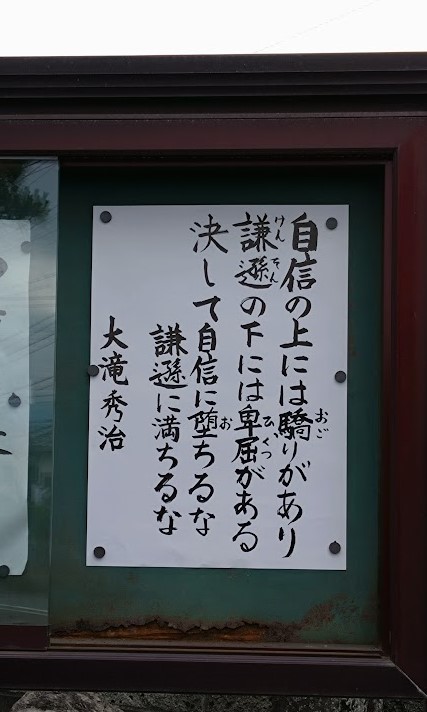 自信の上には驕りがあり
謙遜の下には卑屈がある
決して自信に堕ちるな
謙遜に満ちるな
大滝秀治